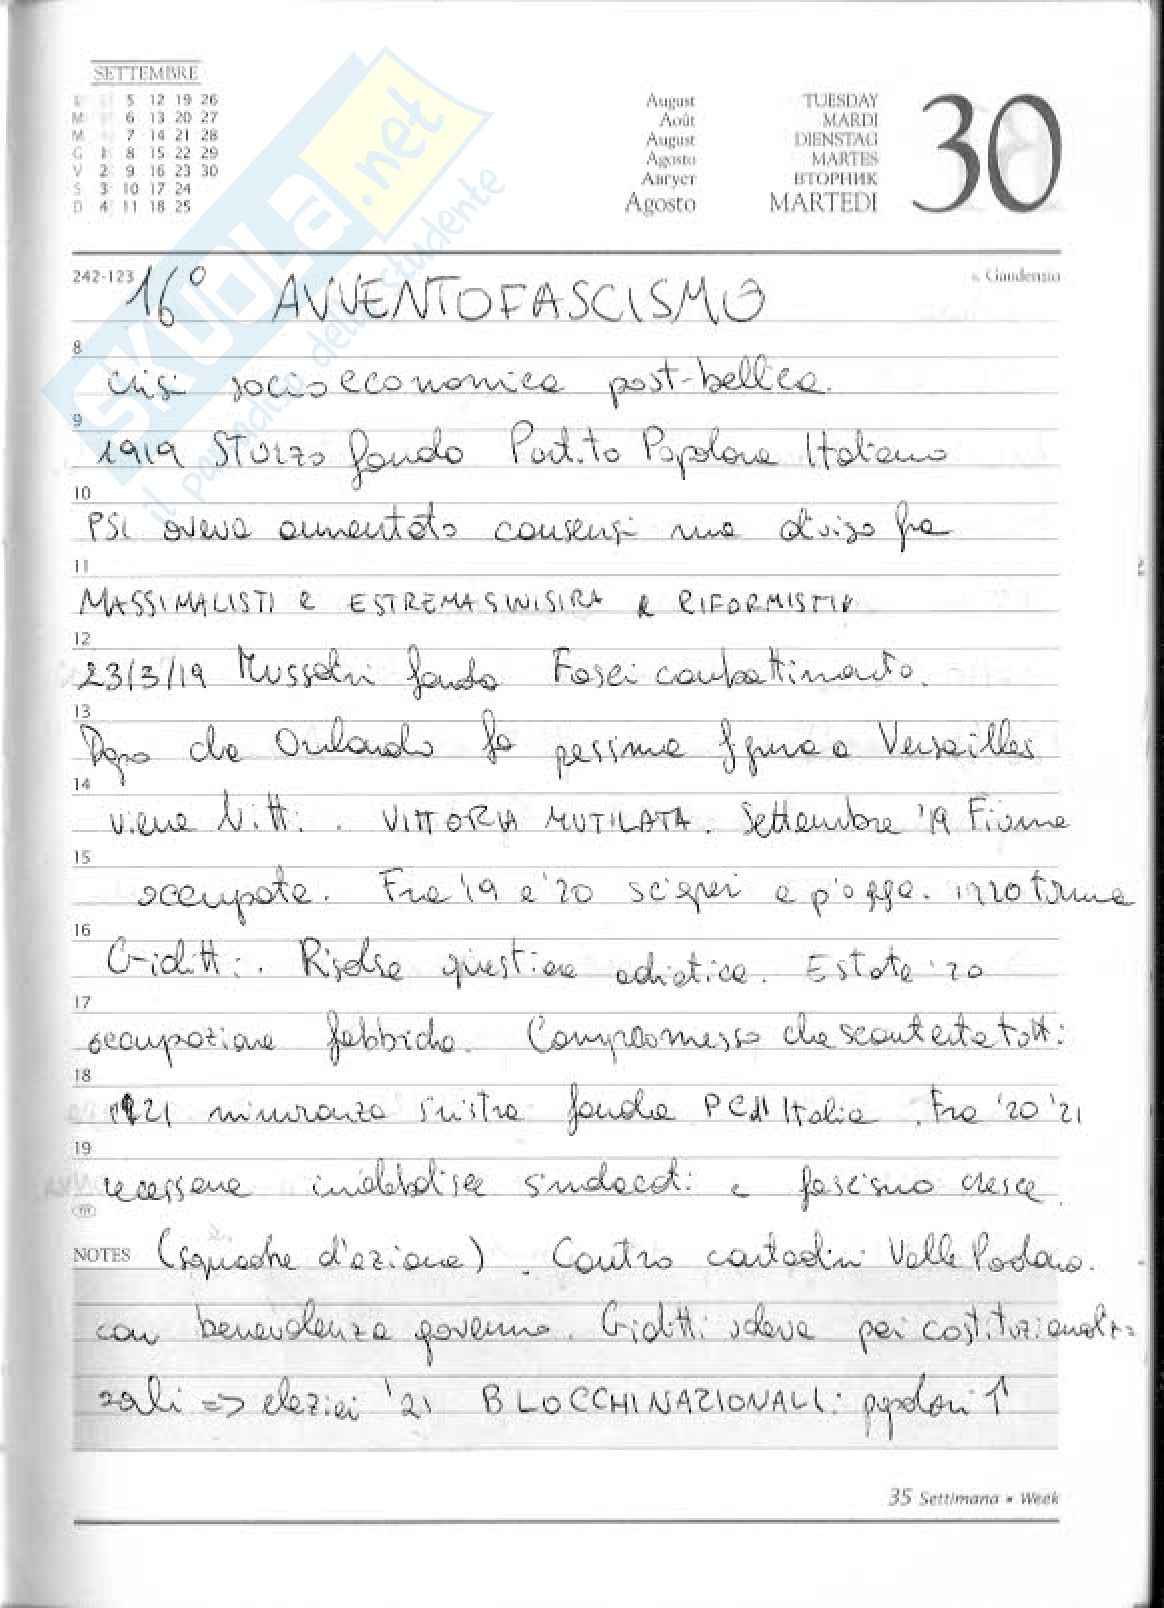 SETTEMBRE
5 12 19 26
M 6 13 20 27
M 7 14 21 28
G 1 8 15 22 29
V 2 9 16 23 30
S 3 10 17 24
D 4 11 18 25
August TUESDAY
Août MARDI
August DIENSTAG
Agosto MARTES
Август ВТОРНИК
Agosto MARTEDI
30
SKUOLA.net
il paradiso dello studente
242-123 s. Gaudenzio
16° AVVENTO FASCISMO
8
crisi socio economica post-bellica.
9
1919 Sturzo fonda Partito Popolare Italiano
10
PSI aveva aumentato consensi ma diviso fra
11
MASSIMALISTI e ESTREMA SINISTRA e RIFORMISTI
12
23/3/19 Mussolini fonda Fasci combattimento.
13
Dopo che Orlando fa pessima figura a Versailles
14
viene Nitti. VITTORIA MUTILATA. Settembre '19 Fiume
15
occupata. Fra '19 e '20 scioperi e piogge. 1920 torna
16
Giolitti. Risolse questione adriatica. Estate '20
17
occupazione fabbriche. Compromesso che scontenta tutti
18
1921 minoranza sinistra fonda PC d'Italia. Fra '20 '21
19
recessione indebolisce sindacati e fascismo cresce
NOTES (squadre d'azione). Contro contadini Valle Padana.
con benevolenza governo. Giolitti voleva poi costituzionaliz
zarli => elezioi '21 BLOCCHI NAZIONALI: popolari ↑
35 Settimana • Week